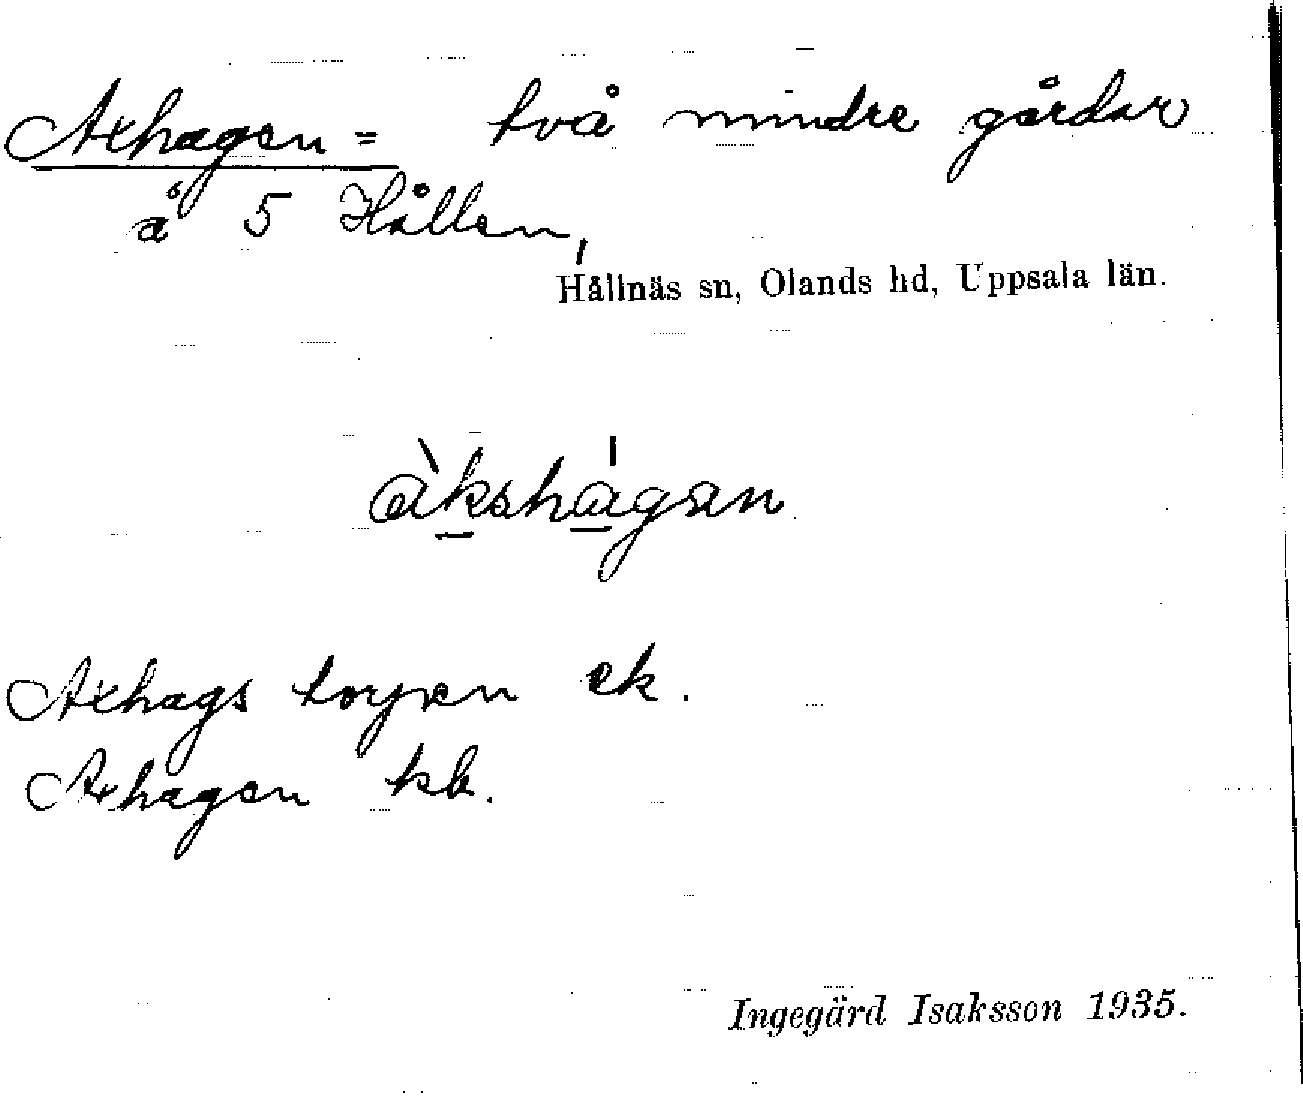 Axhagen = två mindre gårdar
å 5 Hållen,
Hållnäs sn, Olands hd, Uppsala län.
àkshágan
Axhags torpen ek.
Axhagen kb.
Ingegärd Isaksson 1935.